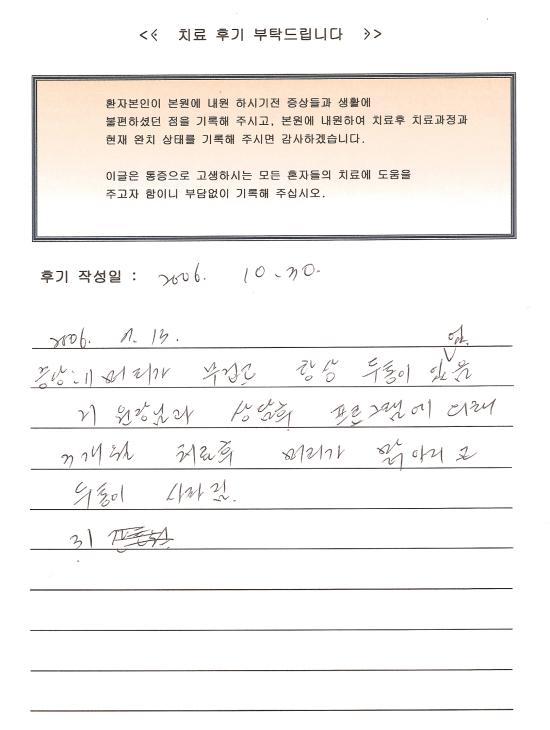 << 치료 후기 부탁드립니다 >>
환자본인이 본원에 내원 하시기전 증상들과 생활에
불편하셨던 점을 기록해 주시고, 본원에 내원하여 치료후 치료과정과
현재 완치 상태를 기록해 주시면 감사하겠습니다.
이글은 통증으로 고생하시는 모든 혼자들의 치료에 도움을
주고자 함이니 부담없이 기록해 주십시오.
후기 작성일 : 2006. 10. 30.
2006. 13.
머리가 무겁고 항상 두통이
원장님과 상담후 프로그램에 의해
3개월 치료후 머리가 맑아지고
두통이 사라짐.
3)